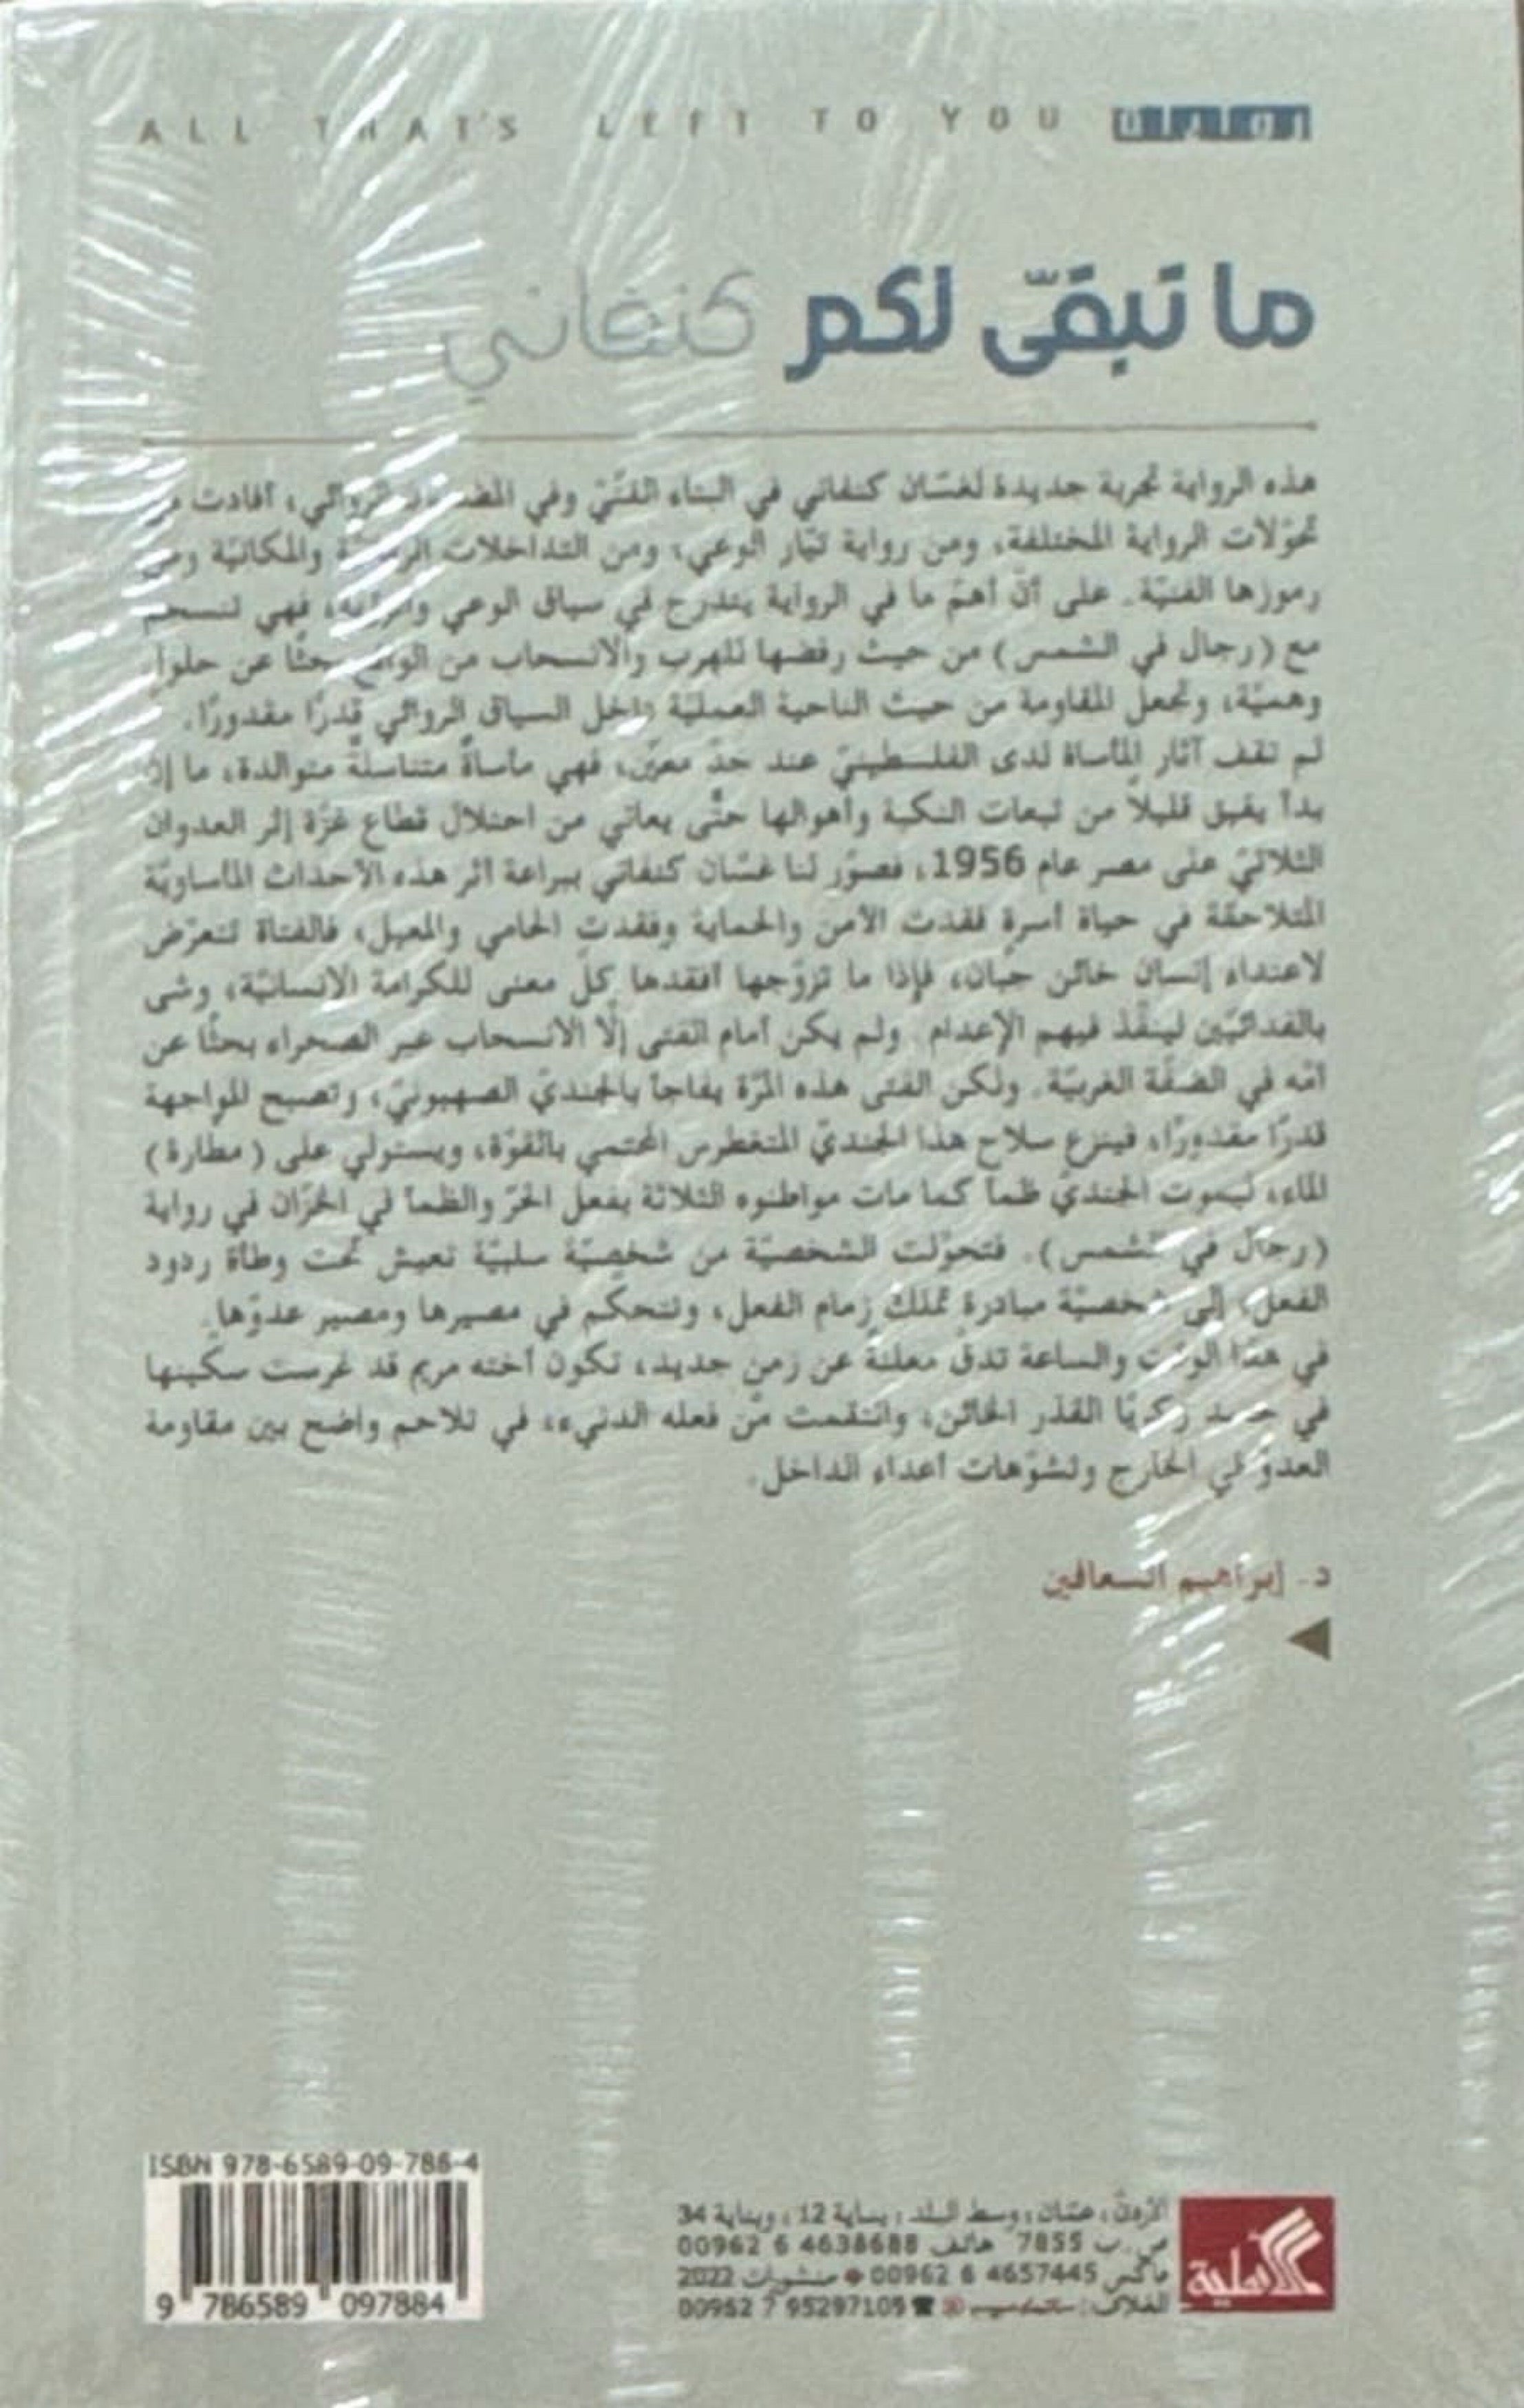 ALL THAT'S LEFT TO YOU
ما تبقّى لكم كنفاني
هذه الرواية تجربة جديدة لغسّان كنفاني في البناء الفنّيّ وفي الروائي، أفادت
تحوّلات الرواية المختلفة، ومن رواية تيّار الوعي، ومن التداخلات والمكانيّة ومن
رموزها الفنيّة. على أنّ أهمّ ما في الرواية يندرج في سياق الوعي فهي تنسجم
مع (رجال في الشمس) من حيث رفضها للهرب والانسحاب من الواقع بحثًا عن حلول
وهميّة، وتجعل المقاومة من حيث الناحية العمليّة داخل السياق الروائي قدرًا مقدورًا.
لم تقف آثار المأساة لدى الفلسطينيّ عند حدّ معيّن، فهي مأساةٌ متناسلةٌ متوالدة، ما إن
بدأ يفيق قليلاً من تبعات النكبة وأهوالها حتّى يعاني من احتلال قطاع غزّة إثر العدوان
الثلاثيّ على مصر عام 1956، فصوّر لنا غسّان كنفاني ببراعة أثر هذه الأحداث المأساويّة
المتلاحقة في حياة أسرة فقدت الأمن والحماية وفقدت الحامي والمعيل، فالفتاة تتعرّض
لاعتداء إنسان خائن جبان، فإذا ما تزوّجها أفقدها كلّ معنى للكرامة الانسانيّة، وشى
بالفدائيّين لينفّذ فيهم الإعدام. ولم يكن أمام الفتى إلّا الانسحاب عبر الصحراء بحثًا عن
أمّه في الضفّة الغربيّة. ولكن الفتى هذه المرّة يفاجأ بالجنديّ الصهيونيّ، وتصبح المواجهة
قدرًا مقدورًا، فينزع سلاح هذا الجنديّ المتغطرس المحتمي بالقوّة، ويستولي على (مطارة)
الماء، ليموت الجنديّ ظمأ كما مات مواطنوه الثلاثة بفعل الحرّ والظمأ في الخزّان في رواية
(رجال في الشمس). فتحوّلت الشخصيّة من شخصيّة سلبيّة تعيش تحت وطأة ردود
الفعل، إلى شخصيّة مبادرة تملك زمام الفعل، وتتحكّم في مصيرها ومصير عدوّها.
في هذا الوقت والساعة تدقّ معلنة عن زمن جديد، تكون أخته مريم قد غرست سكّينها
في جسد زكريّا القذر الخائن، وانتقمت من فعله الدنيء، في تلاحم واضح بين مقاومة
العدوّ في الخارج وتشوّهات أعداء الداخل.
د. إبراهيم السعافين
ISBN 978-6589-09-788-4
9 786589 097884
الأهلية
الأردن، عمّان، وسط البلد، بناية 12، وبناية 34
ص.ب 7855 هاتف 00962 6 4638688
فاكس 00962 6 4657445 منشورات 2022
الغلاف: 00962 7 95297109